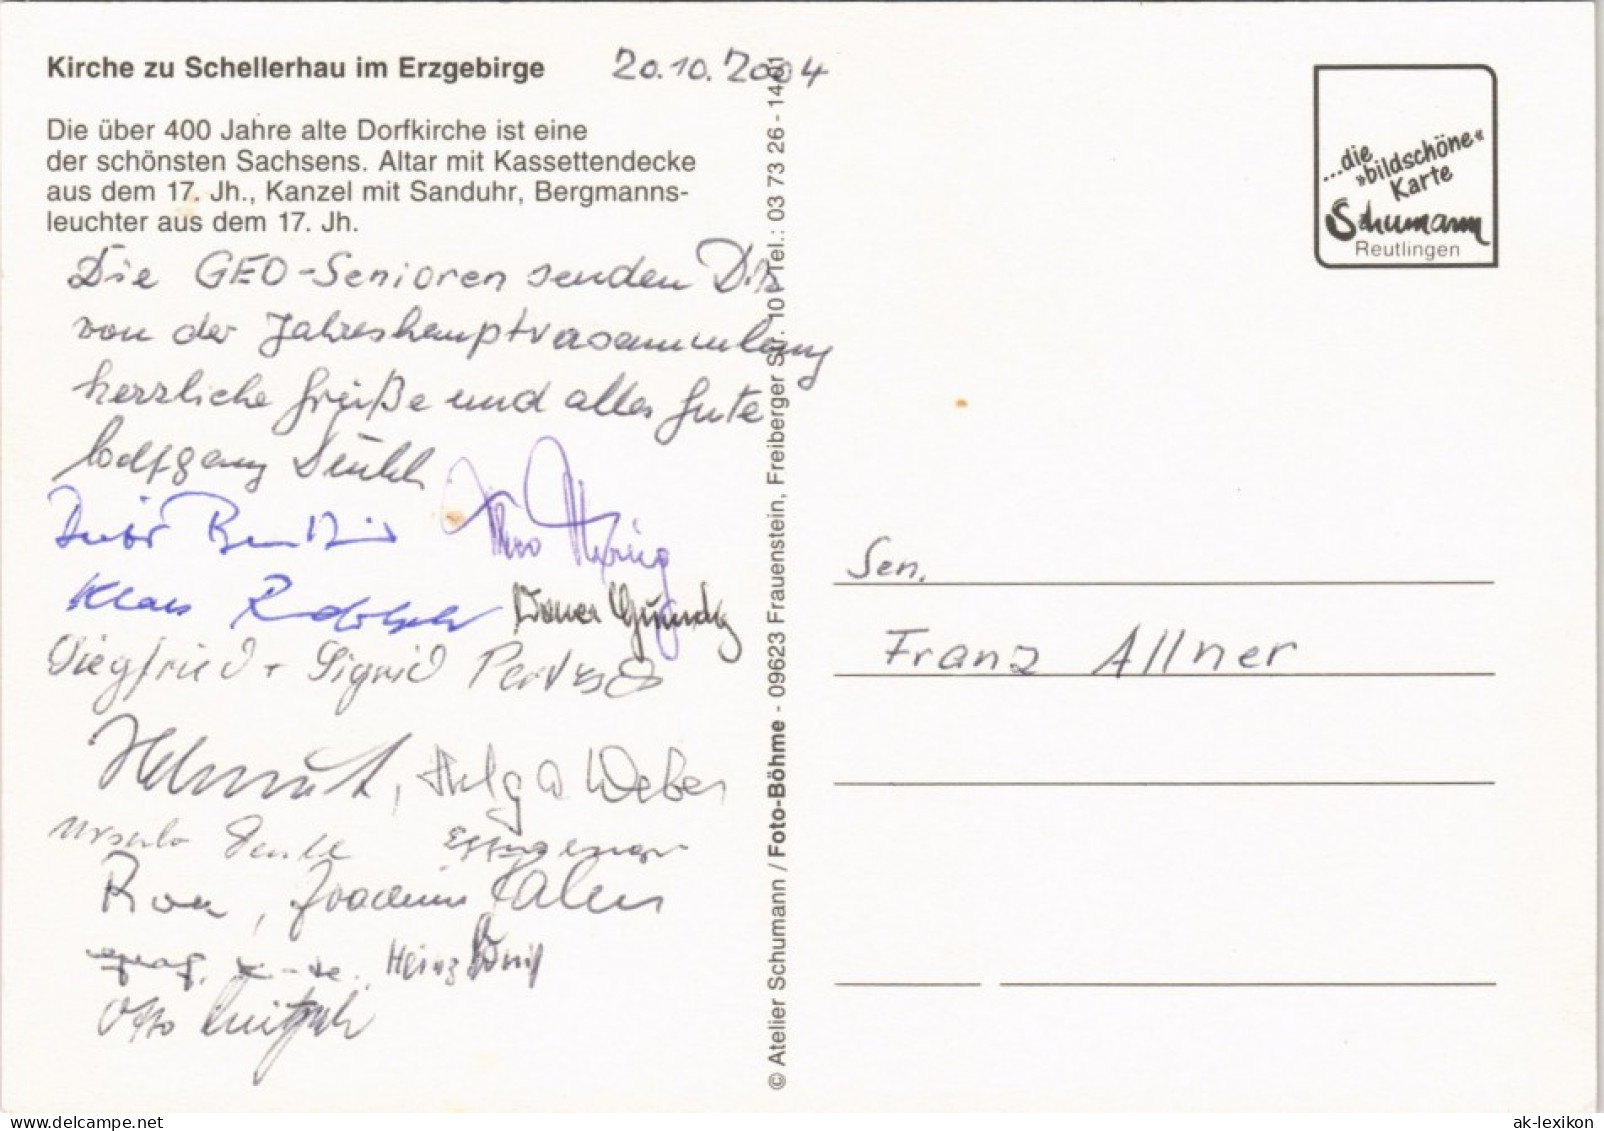 Kirche zu Schellerhau im Erzgebirge
20.10.2004
Die über 400 Jahre alte Dorfkirche ist eine
der schönsten Sachsens. Altar mit Kassettendecke
aus dem 17. Jh., Kanzel mit Sanduhr, Bergmanns-
leuchter aus dem 17. Jh.
Die GEO-Senioren senden Dir
von der Jahreshauptversammlung
herzliche Grüße und alles Gute
Wolfgang
Dieter
Klaus Rudolph
Siegfried + Sigrid
Helmut, Helga Weber
Ursula
Joachim
Heinz
Otto
© Atelier Schumann / Foto-Böhme - 09623 Frauenstein, Freiberger Str. 10 Tel.: 03 73 26 - 14
...die
»bildschöne«
Karte
Schumann
Reutlingen
Sen.
Franz Allner
delcampe.net
ak-lexikon